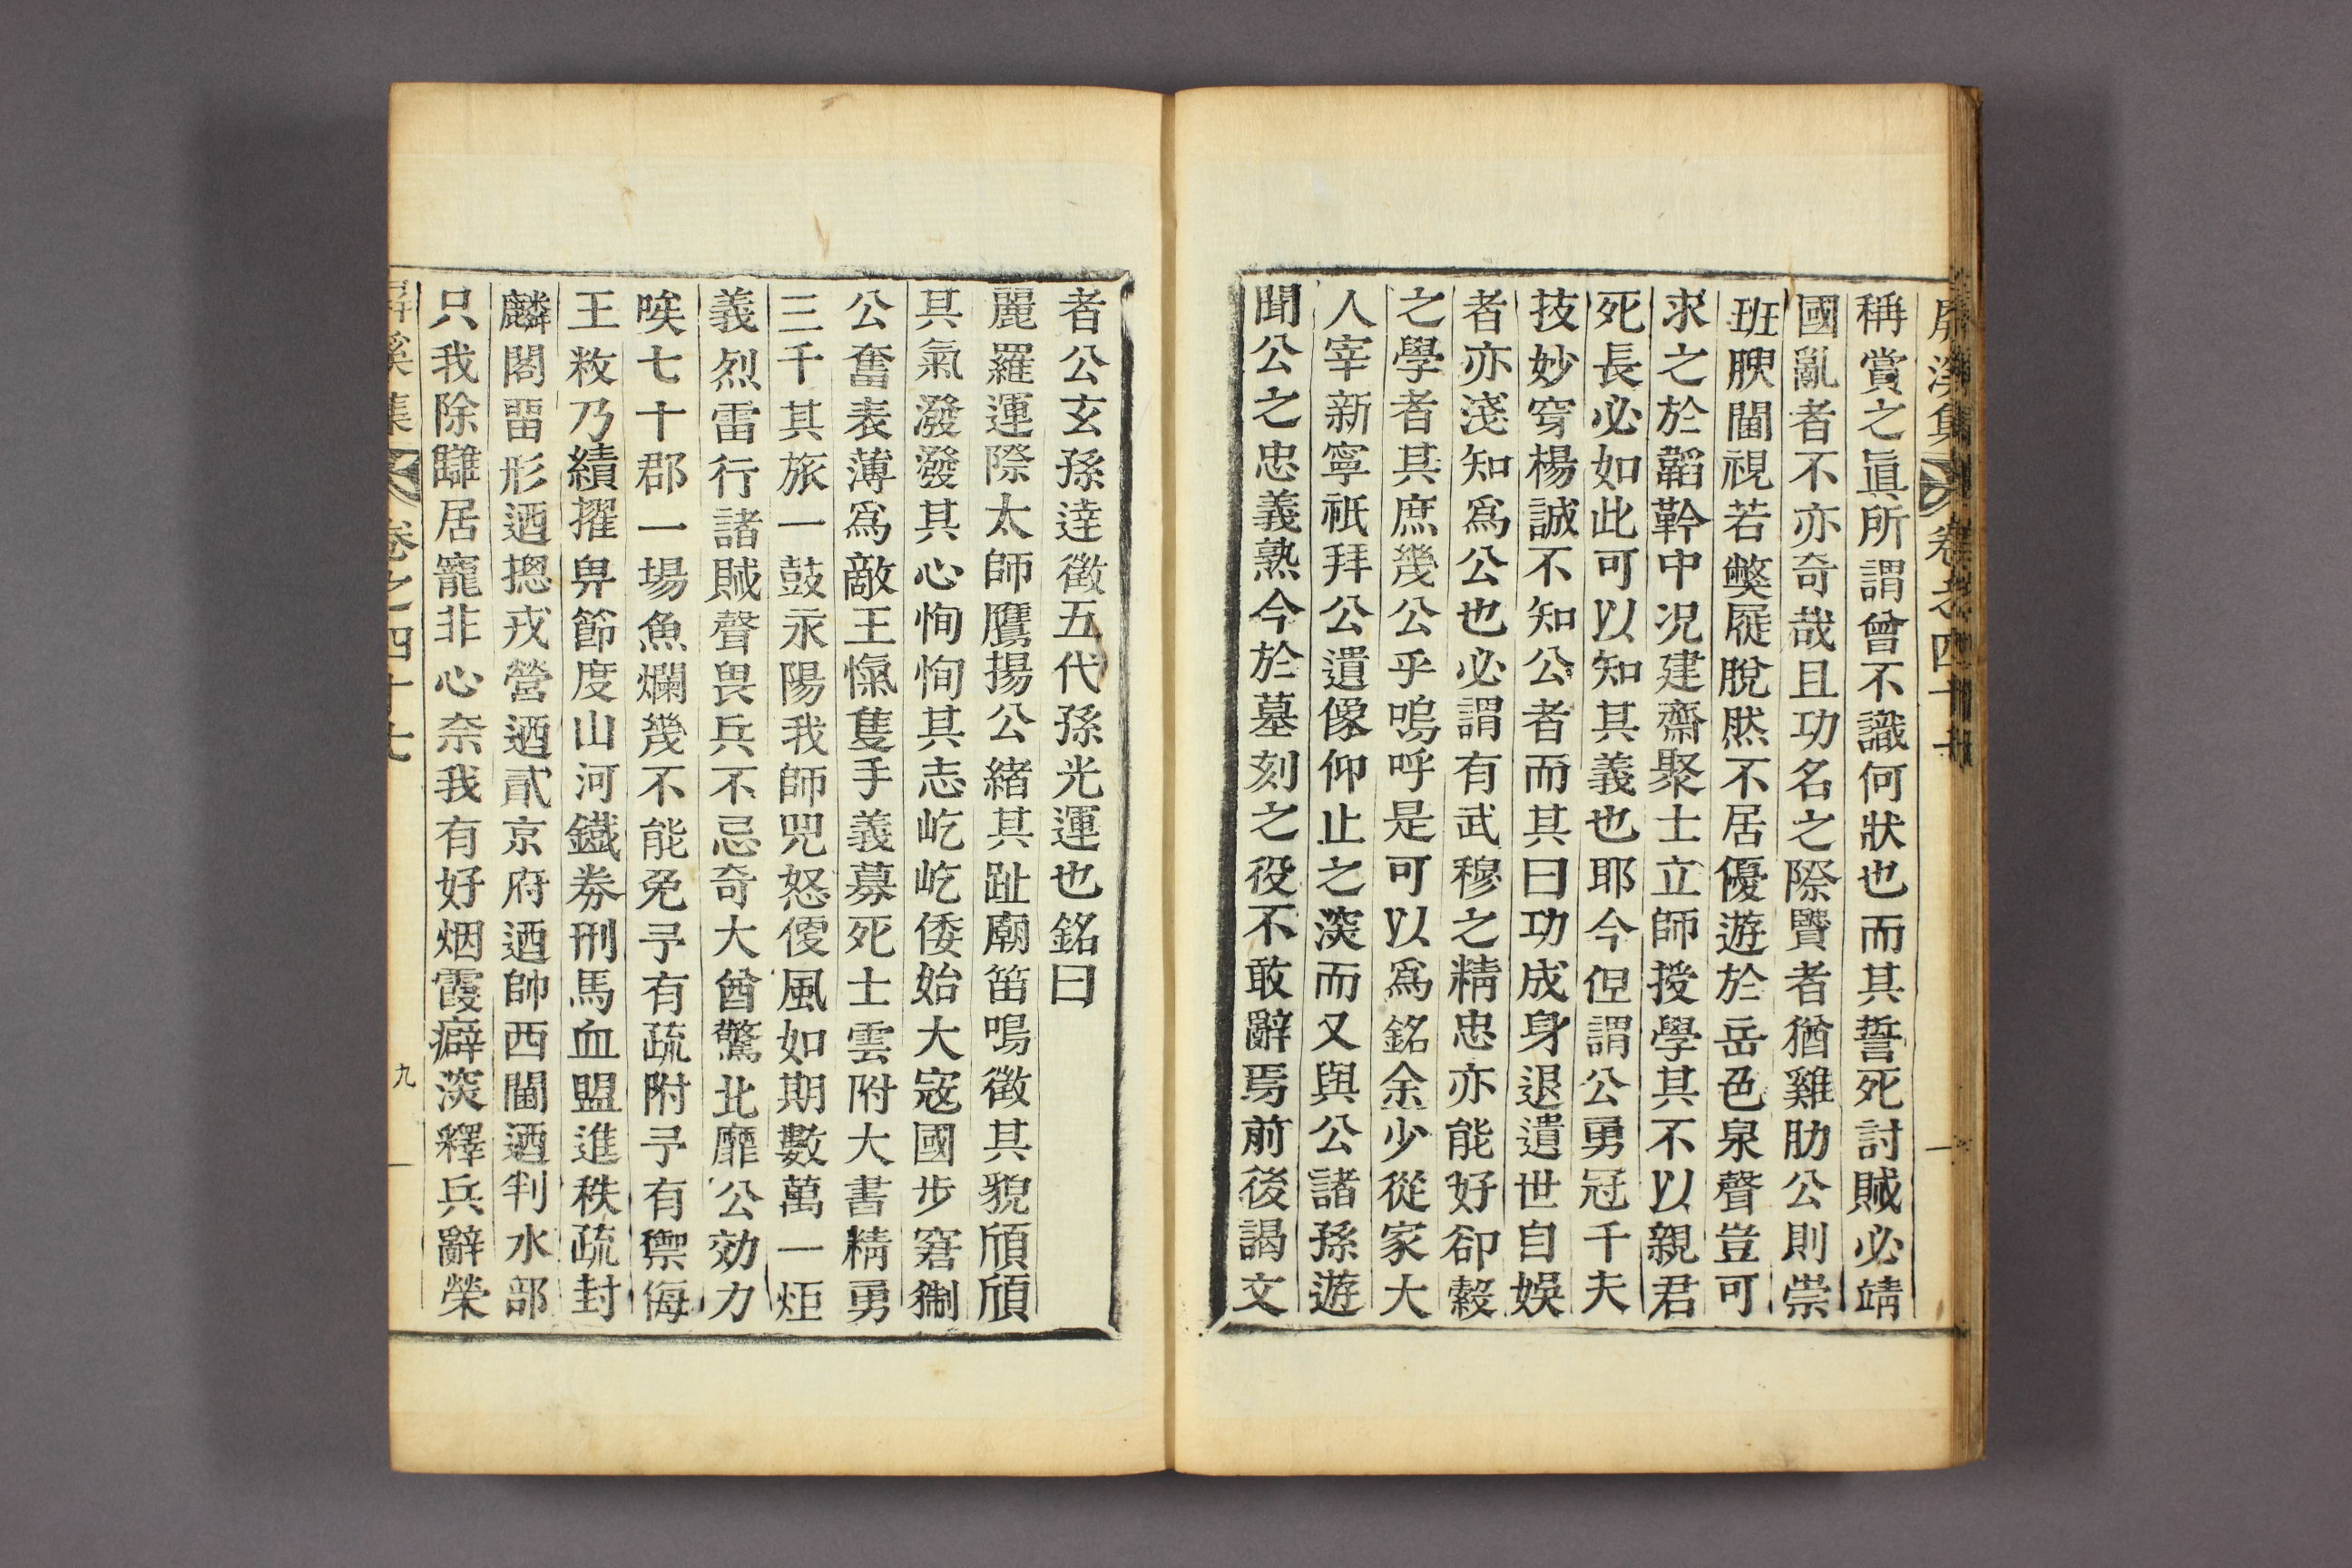 屛溪集 卷之四十七
稱賞之眞所謂曾不識何狀也而其誓死討賊必靖
國亂者不亦奇哉且功名之際賢者猶雞肋公則崇
班腴閫視若弊屣脫然不居優遊於岳色泉聲豈可
求之於韜鈐中况建齋聚士立師授學其不以親君
死長必如此可以知其義也耶今但謂公勇冠千夫
技妙穿楊誠不知公者而其曰功成身退遺世自娛
者亦淺知爲公也必謂有武穆之精忠亦能好卻縠
之學者其庶幾公乎嗚呼是可以爲銘余少從家大
人宰新寧祇拜公遺像仰止之深而又與公諸孫遊
聞公之忠義熟今於墓刻之役不敢辭焉前後謁文
者公玄孫達徵五代孫光運也銘曰
麗羅運際太師鷹揚公緖其趾廟笛鳴徵其貌頎頎
其氣潑潑其心恂恂其志屹屹倭始大寇國步窘
公奮表薄爲敵王愾隻手義募死士雲附大書精勇
三千其旅一鼓永陽我師兕怒便風如期數萬一炬
義烈雷行諸賊聲畏兵不忌奇大酋驚北靡公効力
唉七十郡一場魚爛幾不能免予有疏附予有禦侮
王敉乃績擢畀節度山河鐵券刑馬血盟進秩疏封
麟閣畱形迺摠戎營迺貳京府迺帥西閫迺判水部
只我除讎居寵非心奈我有好烟霞癖深釋兵辭榮
屛溪集 卷之四十七 九